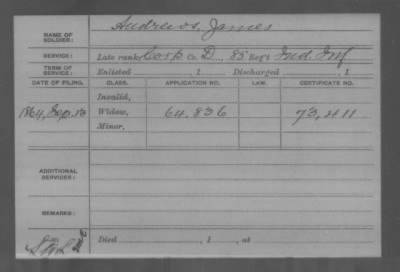 NAME OF SOLDIER: Andrews, James
SERVICE: Late rank, Corp Co. D, 85 Reg't Ind. Inf
TERM OF SERVICE: Enlisted , 1 Discharged , 1
DATE OF FILING. CLASS. APPLICATION NO. LAW. CERTIFICATE NO.
Invalid,
1864, Sep. 13 Widow, 64,836 73,411
Minor,
ADDITIONAL SERVICES:
REMARKS:
Died , 1 , at